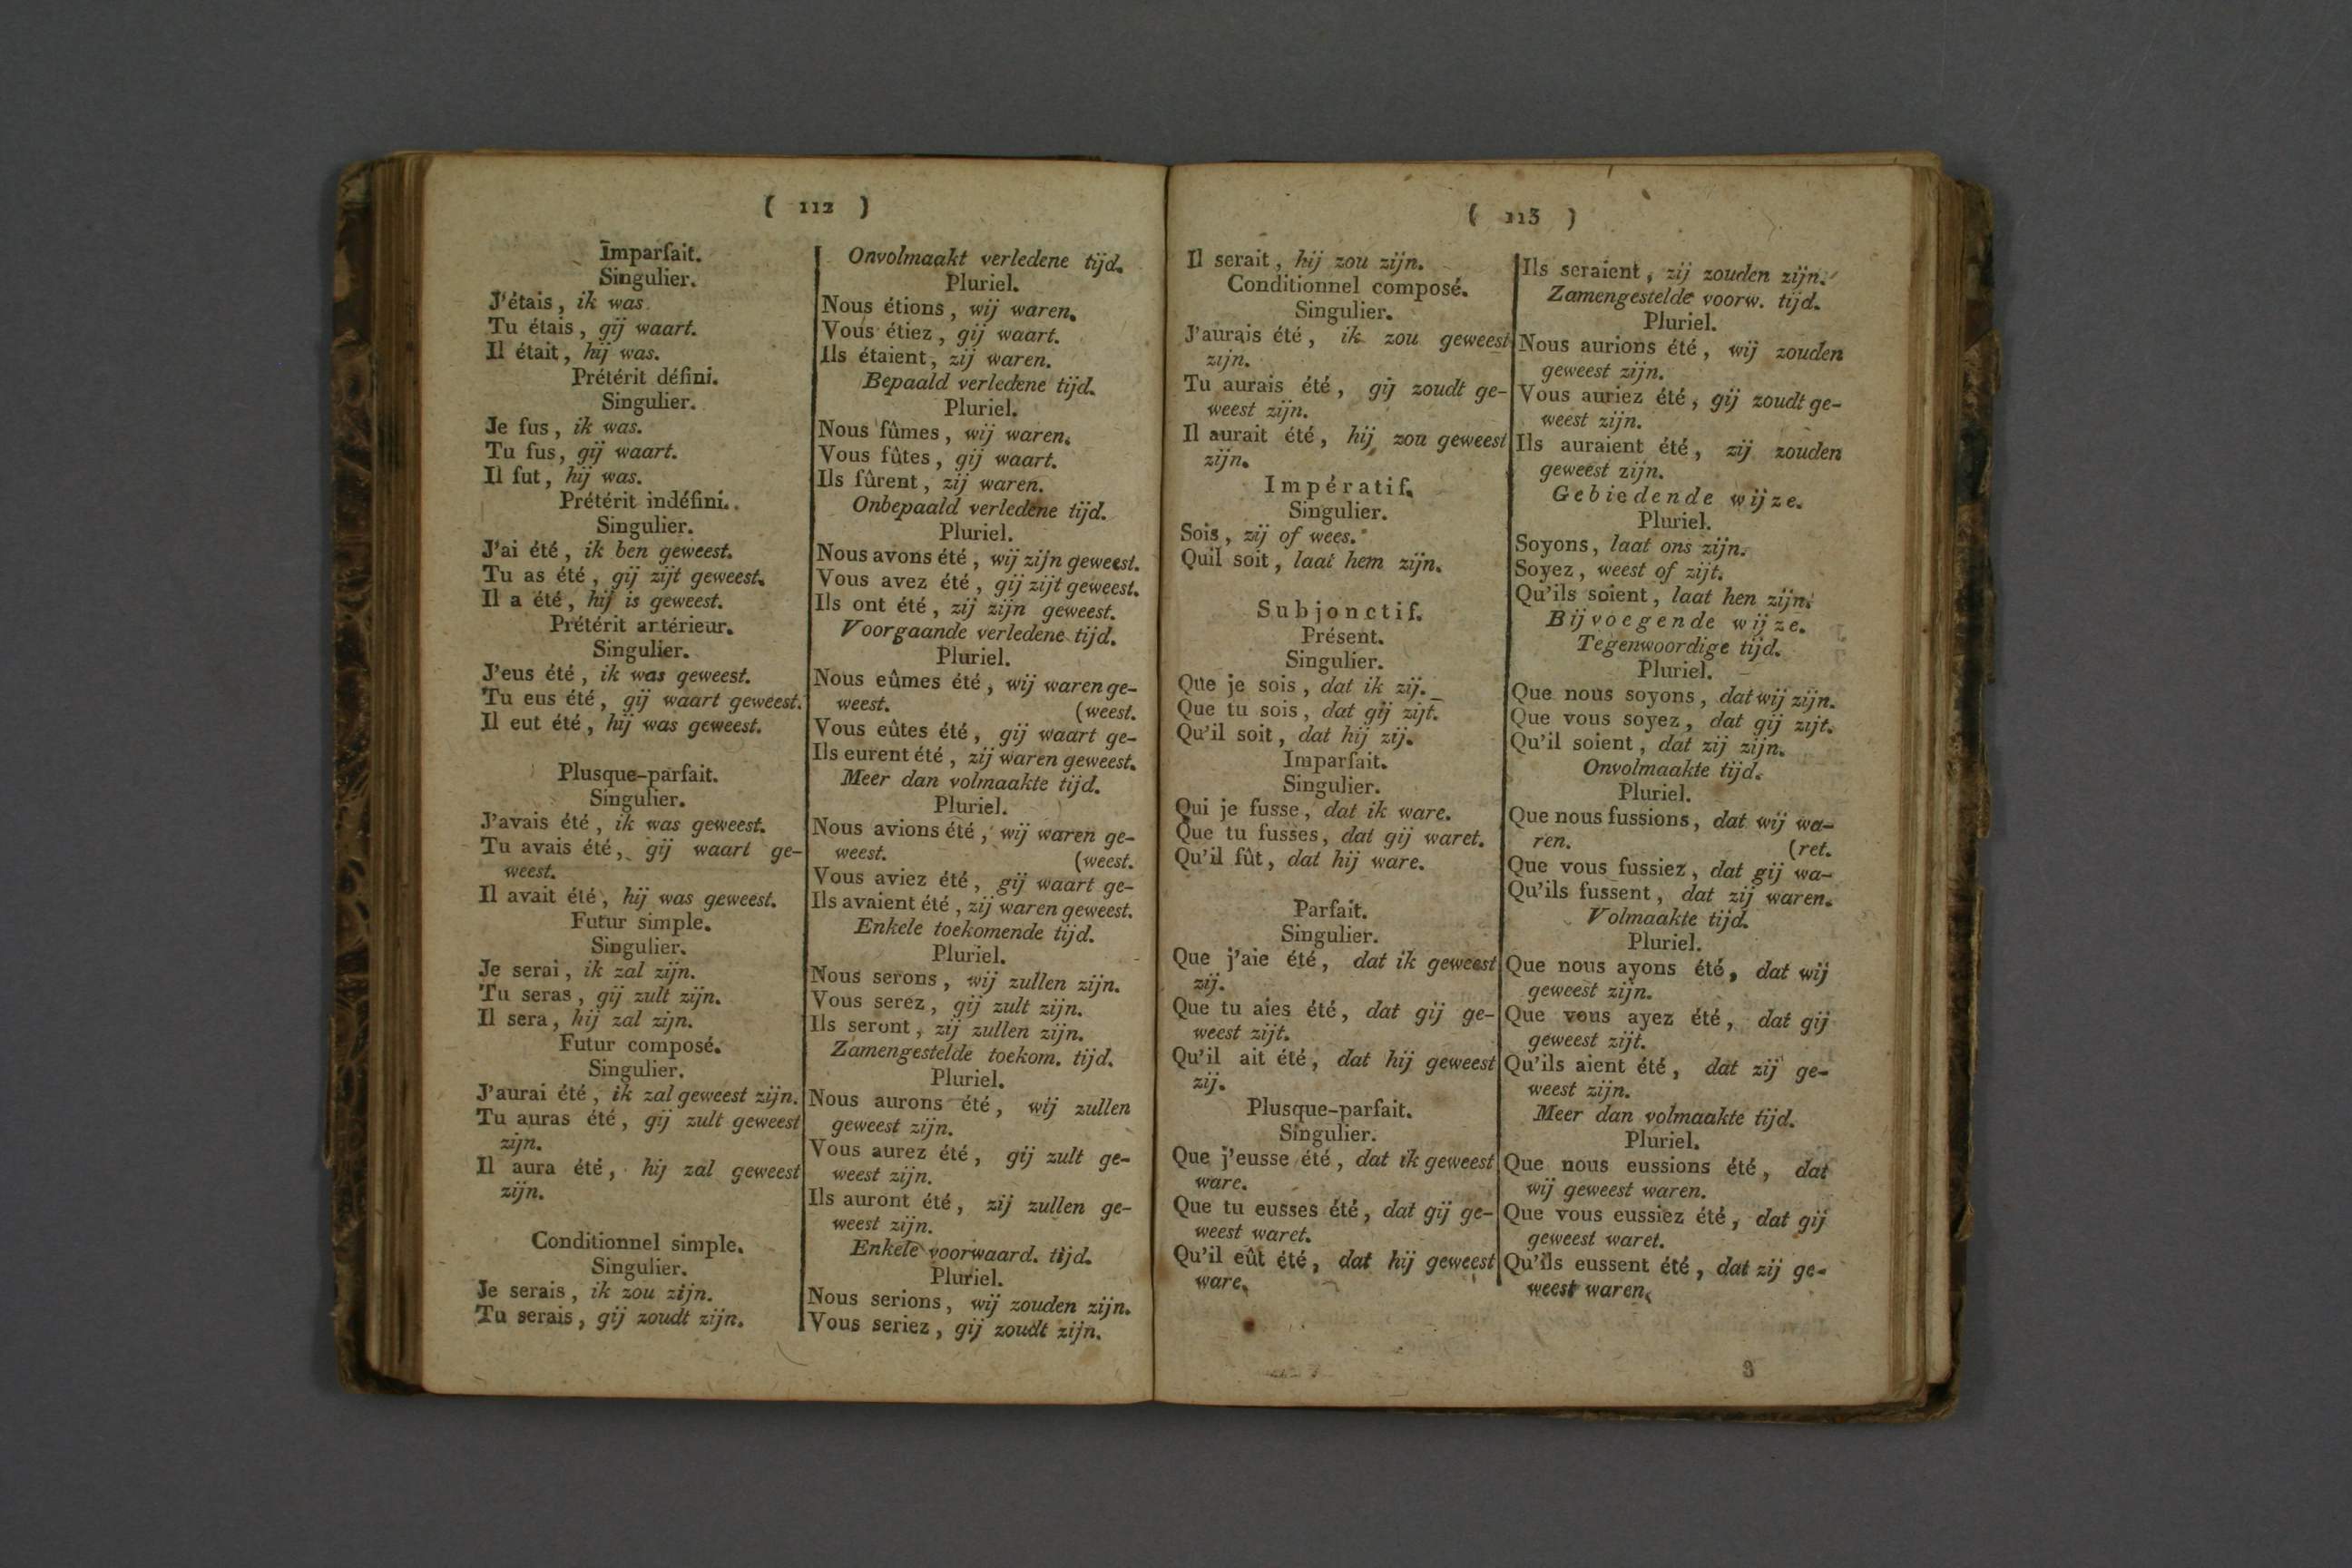 ( 112 )
Imparfait.
Singulier.
J'étais, ik was.
Tu étais, gij waart.
Il était, hij was.
Prétérit défini.
Singulier.
Je fus, ik was.
Tu fus, gij waart.
Il fut, hij was.
Prétérit indéfini.
Singulier.
J'ai été, ik ben geweest.
Tu as été, gij zijt geweest.
Il a été, hij is geweest.
Prétérit artérieur.
Singulier.
J'eus été, ik was geweest.
Tu eus été, gij waart geweest.
Il eut été, hij was geweest.
Plusque-parfait.
Singulier.
J'avais été, ik was geweest.
Tu avais été, gij waart ge-
weest.
Il avait été, hij was geweest.
Futur simple.
Singulier.
Je serai, ik zal zijn.
Tu seras, gij zult zijn.
Il sera, hij zal zijn.
Futur composé.
Singulier.
J'aurai été, ik zal geweest zijn.
Tu auras été, gij zult geweest
zijn.
Il aura été, hij zal geweest
zijn.
Conditionnel simple.
Singulier.
Je serais, ik zou zijn.
Tu serais, gij zoudt zijn.
Onvolmaakt verledene tijd.
Pluriel.
Nous étions, wij waren.
Vous étiez, gij waart.
Ils étaient, zij waren.
Bepaald verledene tijd.
Pluriel.
Nous fûmes, wij waren.
Vous fûtes, gij waart.
Ils fûrent, zij waren.
Onbepaald verledene tijd.
Pluriel.
Nous avons été, wij zijn geweest.
Vous avez été, gij zijt geweest.
Ils ont été, zij zijn geweest.
Voorgaande verledene tijd.
Pluriel.
Nous eûmes été, wij waren ge-
weest. (weest.
Vous eûtes été, gij waart ge-
Ils eurent été, zij waren geweest.
Meer dan volmaakte tijd.
Pluriel.
Nous avions été, wij waren ge-
weest. (weest.
Vous aviez été, gij waart ge-
Ils avaient été, zij waren geweest.
Enkele toekomende tijd.
Pluriel.
Nous serons, wij zullen zijn.
Vous serez, gij zult zijn.
Ils seront, zij zullen zijn.
Zamengestelde toekom. tijd.
Pluriel.
Nous aurons été, wij zullen
geweest zijn.
Vous aurez été, gij zult ge-
weest zijn.
Ils auront été, zij zullen ge-
weest zijn.
Enkele voorwaard. tijd.
Pluriel.
Nous serions, wij zouden zijn.
Vous seriez, gij zoudt zijn.
( 113 )
Il serait, hij zou zijn.
Conditionnel composé.
Singulier.
J'aurais été, ik zou geweest
zijn.
Tu aurais été, gij zoudt ge-
weest zijn.
Il aurait été, hij zou geweest
zijn.
Impératif.
Singulier.
Sois, zij of wees.
Quil soit, laat hem zijn.
Subjonctif.
Présent.
Singulier.
Que je sois, dat ik zij.
Que tu sois, dat gij zijt.
Qu'il soit, dat hij zij.
Imparfait.
Singulier.
Qui je fusse, dat ik ware.
Que tu fusses, dat gij waret.
Qu'il fût, dat hij ware.
Parfait.
Singulier.
Que j'aie été, dat ik geweest
zij.
Que tu aies été, dat gij ge-
weest zijt.
Qu'il ait été, dat hij geweest
zij.
Plusque-parfait.
Singulier.
Que j'eusse été, dat ik geweest
ware.
Que tu eusses été, dat gij ge-
weest waret.
Qu'il eût été, dat hij geweest
ware.
Ils seraient, zij zouden zijn.
Zamengestelde voorw. tijd.
Pluriel.
Nous aurions été, wij zouden
geweest zijn.
Vous auriez été, gij zoudt ge-
weest zijn.
Ils auraient été, zij zouden
geweest zijn.
Gebiedende wijze.
Pluriel.
Soyons, laat ons zijn.
Soyez, weest of zijt.
Qu'ils soient, laat hen zijn.
Bijvoegende wijze.
Tegenwoordige tijd.
Pluriel.
Que nous soyons, dat wij zijn.
Que vous soyez, dat gij zijt.
Qu'il soient, dat zij zijn.
Onvolmaakte tijd.
Pluriel.
Que nous fussions, dat wij wa-
ren. (ret.
Que vous fussiez, dat gij wa-
Qu'ils fussent, dat zij waren.
Volmaakte tijd.
Pluriel.
Que nous ayons été, dat wij
geweest zijn.
Que vous ayez été, dat gij
geweest zijt.
Qu'ils aient été, dat zij ge-
weest zijn.
Meer dan volmaakte tijd.
Pluriel.
Que nous eussions été, dat
wij geweest waren.
Que vous eussiez été, dat gij
geweest waret.
Qu'ils eussent été, dat zij ge-
weest waren.